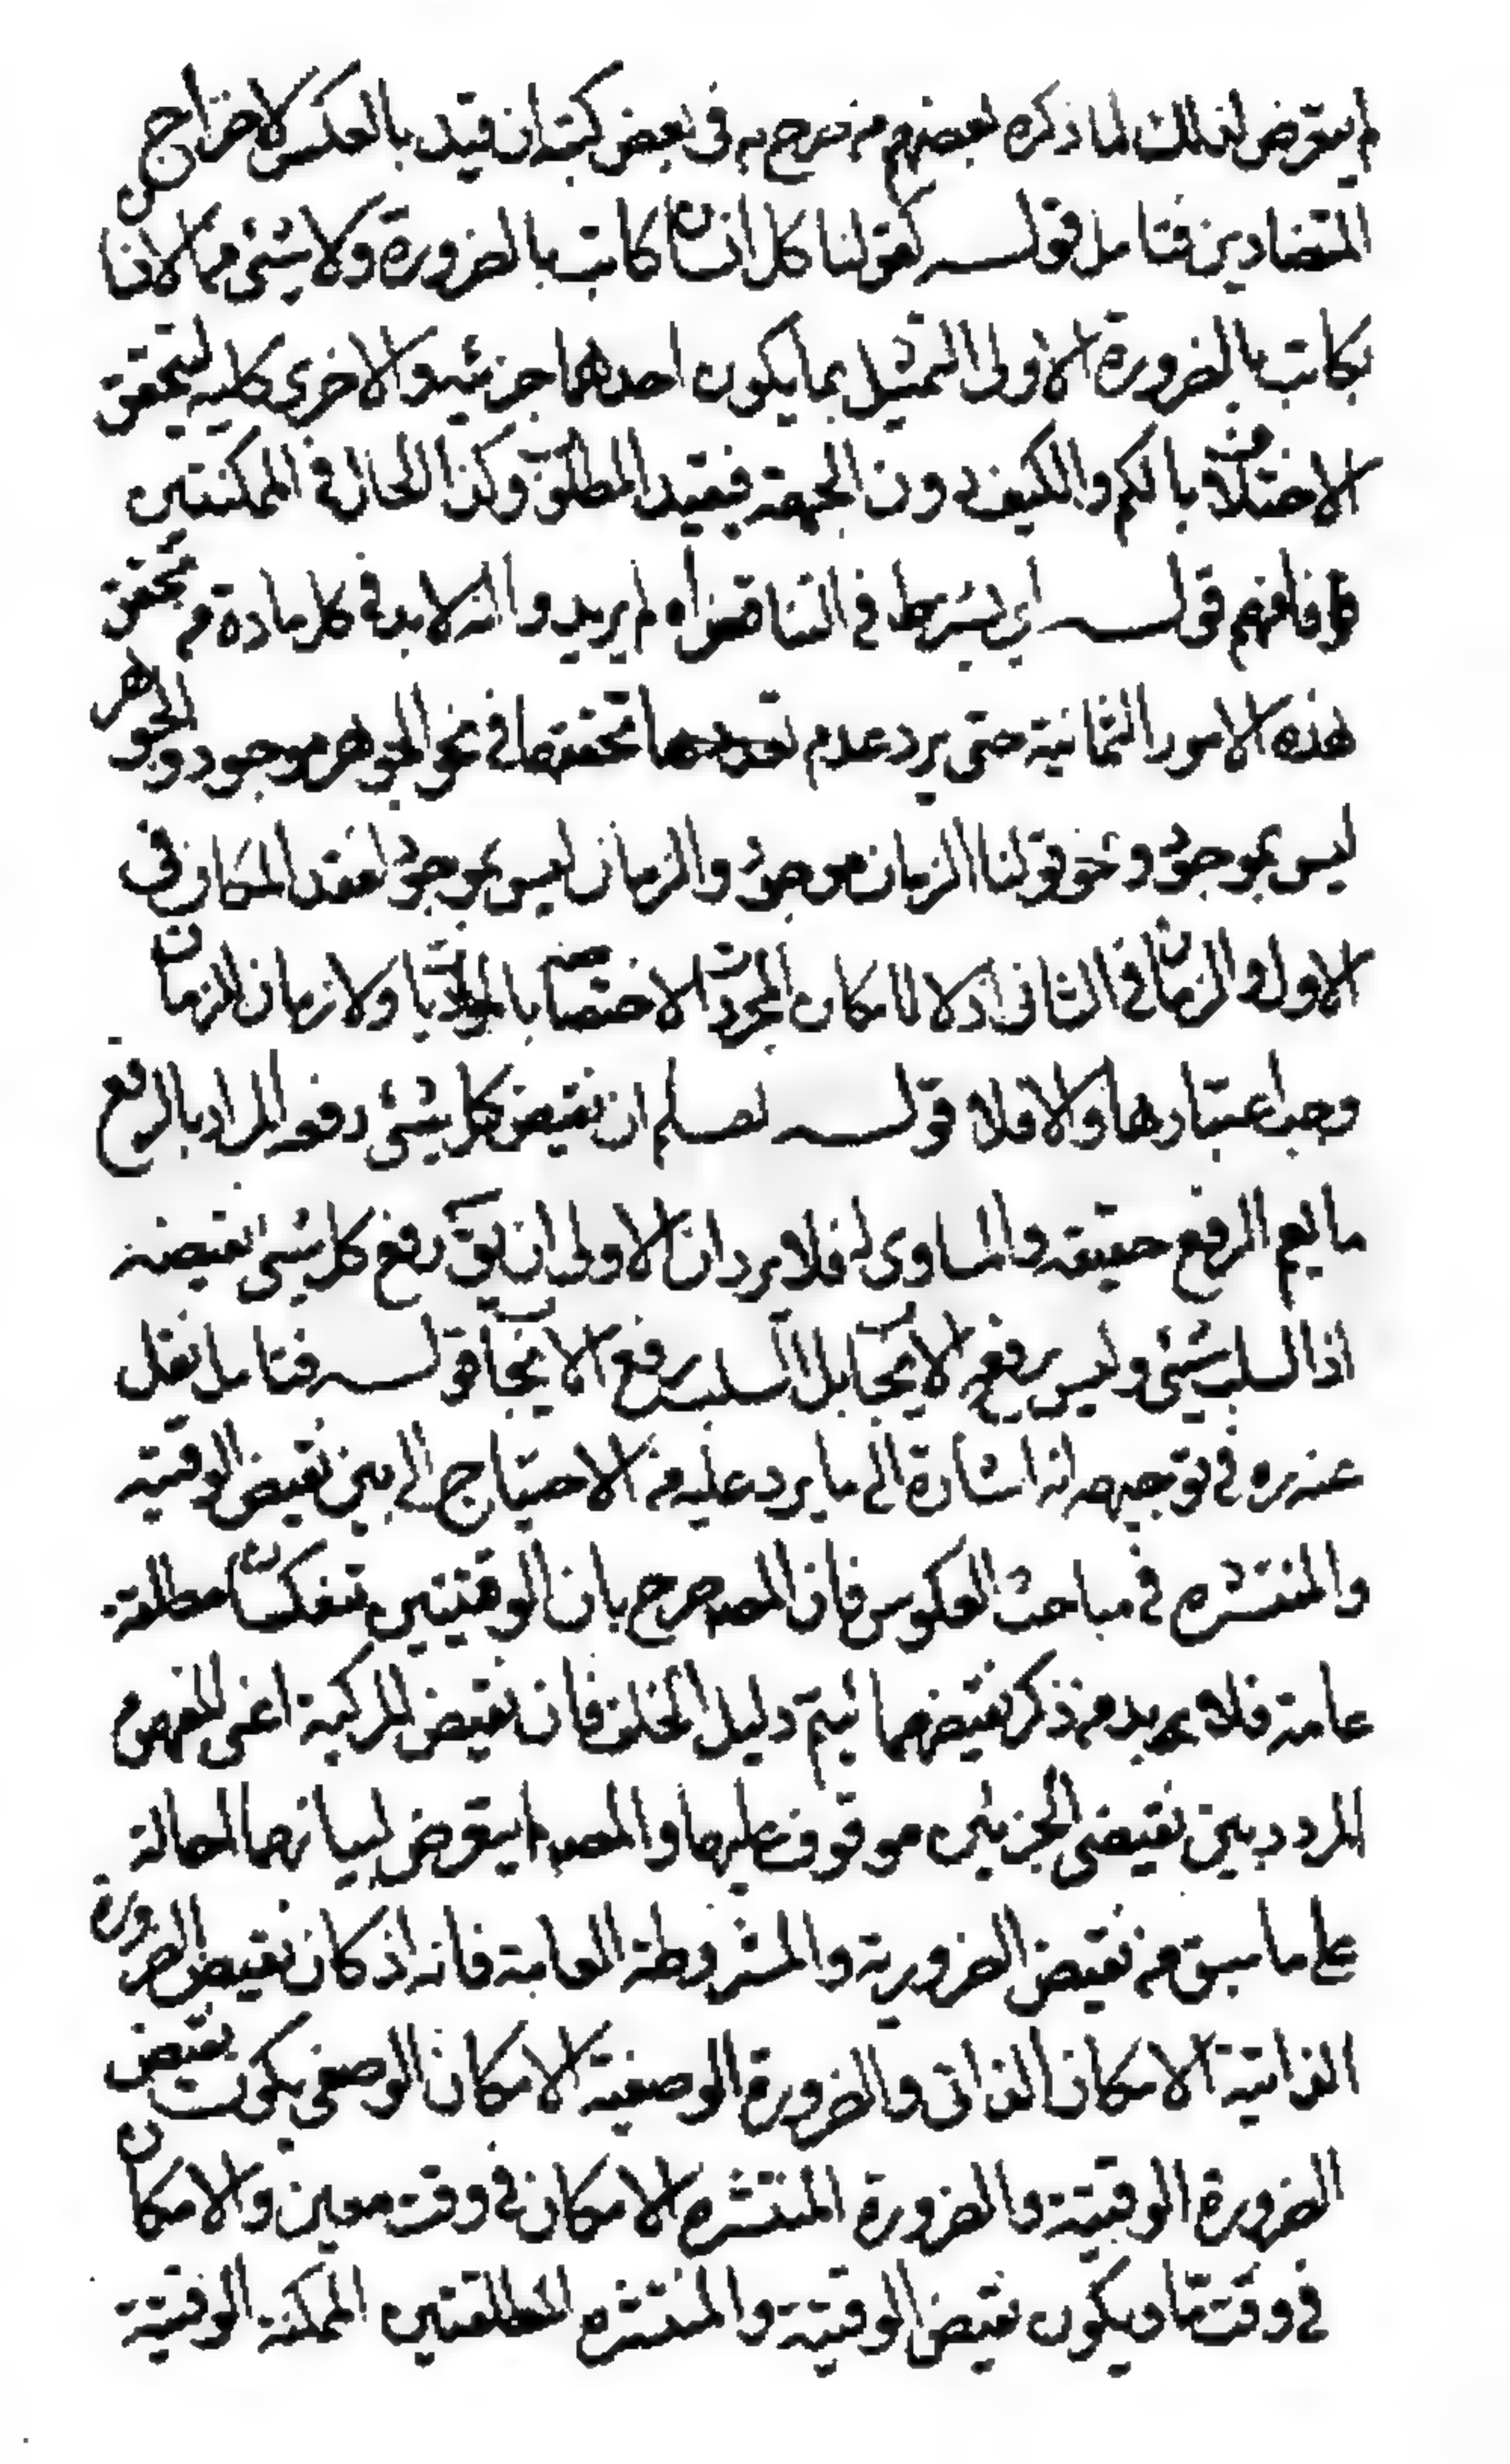 لم يتعرض لذلك لما ذكره بعضهم من صرح به في بعض كتبه ان قيد بالعكس لاخراج
المتضادين فتامل قولــه كقولنا كل انسان كاتب بالضرورة ولا شئ من الانسا
بكاتب بالضرورة الاولى التمثيل بما يكون احدهما جزئية والاخرى كلية ليتحقق
الاختلاف بالكم والكيف دون الجهة فيفيد المطلوب وكذا الحال في الممكنتين
فافهم قولــه اي يشترط في التناقض اه لم يريدوا انه لابد في كل مادة من تحقق
هذه الامور الثمانية حتى يرد عدم تحققها في نحو الجوهر موجود والجوهر
ليس بموجود ونحو قولنا الزمان موجود والزمان ليس بموجود لفقد المكان في
الاول والزمان في الثاني اذ لا مكان للمجردات لاختصاصه بالماديات ولا زمان للزمان
وجب اعتبارها والا فلا قولــه نعلم ان نقيض كل شئ رفعه المراد بالرفع
ما يعم الرفع حقيقة والمساوى له فلا يرد ان الاولى ان يق رفع كل شئ نقيضه
اذ السلب شئ وليس رفعه الايجاب بل السلب رفع الايجاب قولــه فتامل نقل
عنه ره في توجيهه انه اشارة الى ما يرد عليه من الاحتياج الى بين نقيض الوقتيه
والمنتشره في مباحث العكوس فان المص صرح بان الوقتيتين تنعكسان مطلقة
عامة فلا بد من ذكر نقيضهما ليتم دليل الخلف فان نقيض المركبة اعنى المفهوم
المردد بين نقيضى الجزئين موقوف عليها والمص لم يتعرض لبيانهما احالة
على ما سبق من نقيض الضرورية والمشروطة العامة فانه اذ كان نقيض الضرورة
الذاتية الامكان الذاتى والضرورة الوصفية الامكان الوصفى يكون نقيض
الضرورة الوقتية والضرورة المنتشره الامكان في وقت معين والامكان
في وقت ما ويكون نقيض الوقتية والمنتشره المطلقتين الممكنة الوقتية